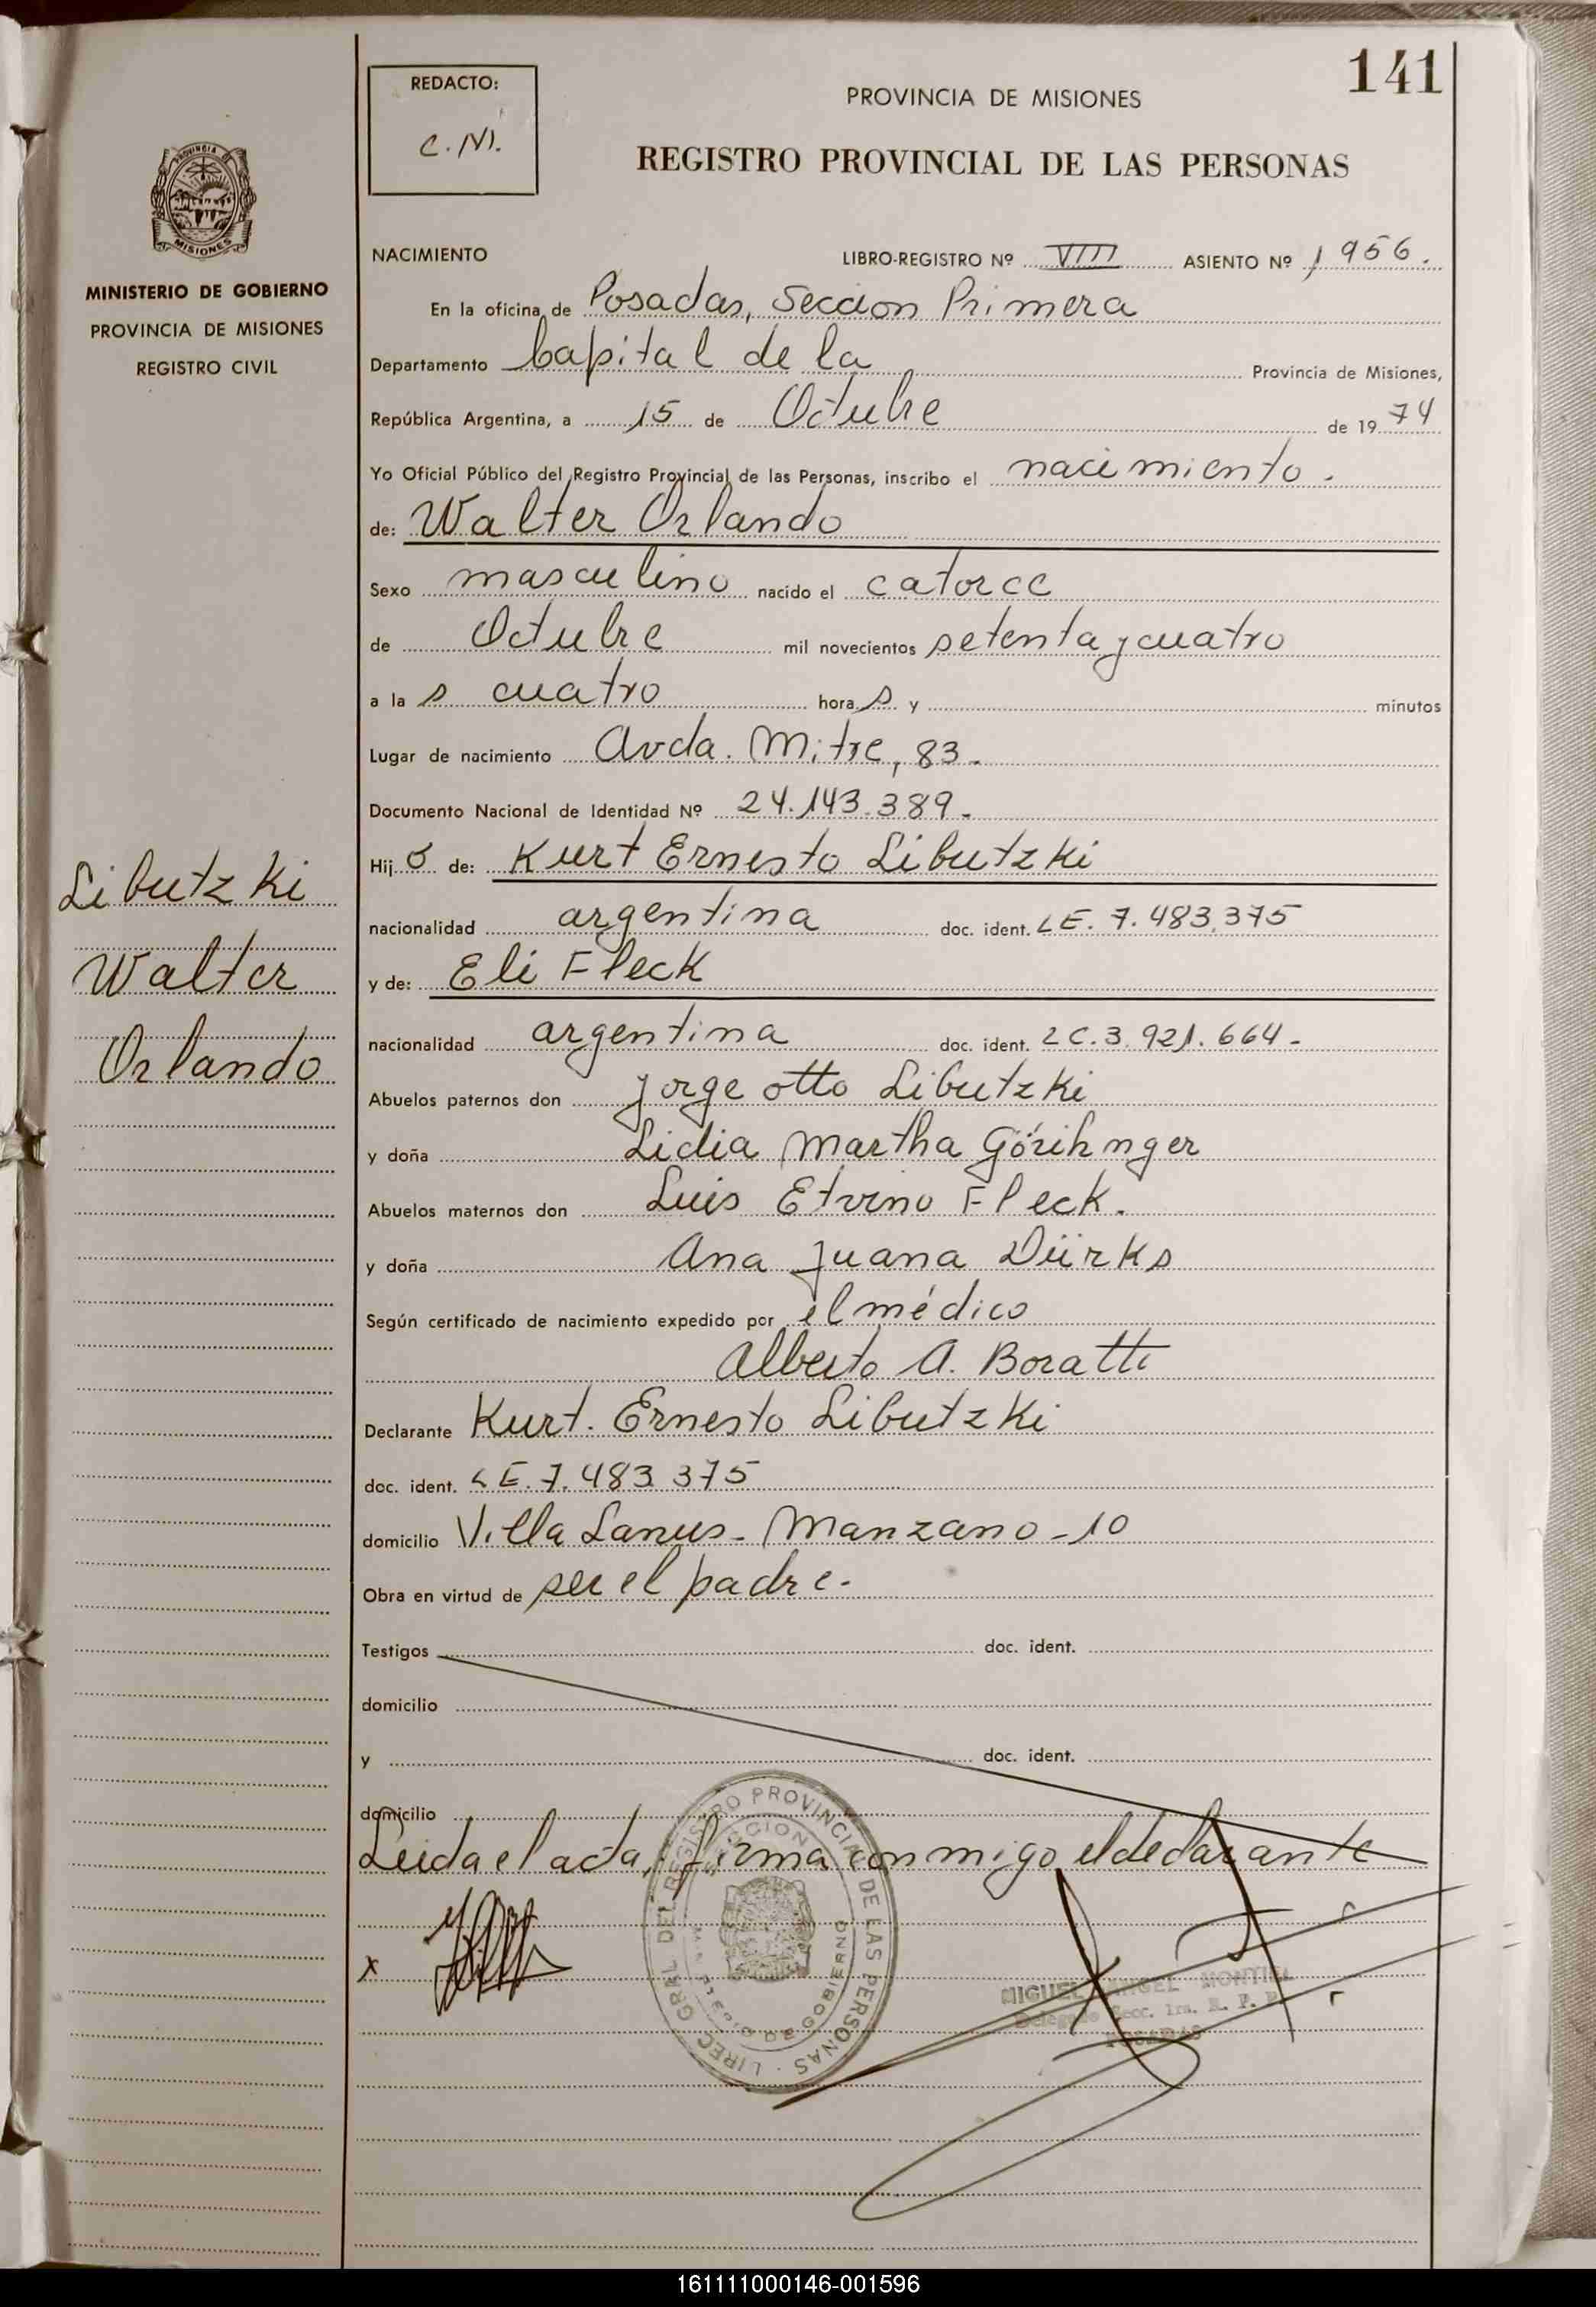 141
REDACTO:
C. M.
PROVINCIA DE MISIONES
REGISTRO PROVINCIAL DE LAS PERSONAS
PROVINCIA DE
MISIONES
MINISTERIO DE GOBIERNO
PROVINCIA DE MISIONES
REGISTRO CIVIL
NACIMIENTO LIBRO-REGISTRO Nº VIII ASIENTO Nº 1956.
En la oficina de Posadas, Seccion Primera
Departamento Capital de la Provincia de Misiones,
República Argentina, a 15 de Octubre de 1974
Yo Oficial Público del Registro Provincial de las Personas, inscribo el nacimiento.
de: Walter Orlando
Sexo masculino nacido el catorce
de Octubre mil novecientos setenta y cuatro
a las cuatro horas y minutos
Lugar de nacimiento Avda. Mitre, 83.
Documento Nacional de Identidad Nº 24.143.389.
Hijo de: Kurt Ernesto Libutzki
nacionalidad argentina doc. ident. LE. 7.483.375
y de: Eli Fleck
nacionalidad argentina doc. ident. LC. 3.921.664-
Abuelos paternos don Jorge Otto Libutzki
y doña Lidia Martha Görihnger
Abuelos maternos don Luis Etvino Fleck.
y doña Ana Juana Dürks
Según certificado de nacimiento expedido por el médico
Alberto A. Boratti
Declarante Kurt. Ernesto Libutzki
doc. ident. LE. 7.483.375
domicilio Villa Lanus- Manzano-10
Obra en virtud de ser el padre.
Testigos doc. ident.
domicilio
y doc. ident.
domicilio
Leida el acta, firma conmigo el declarante
x
Libutzki
Walter
Orlando
DIREC. GRAL DEL REGISTRO PROVINCIAL DE LAS PERSONAS
SECCION
MINISTERIO DE GOBIERNO
MIGUEL ANGEL MONTIEL
Delegado Secc. 1ra. R. P. P.
POSADAS
161111000146-001596